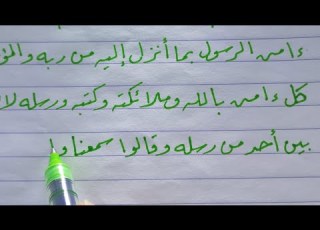 ءامن الرسول بما أنزل إليه من ربه والمؤ
كل ءامن بالله وملائكته وكتبه ورسله لا
بين أحد من رسله وقالوا سمعنا وا